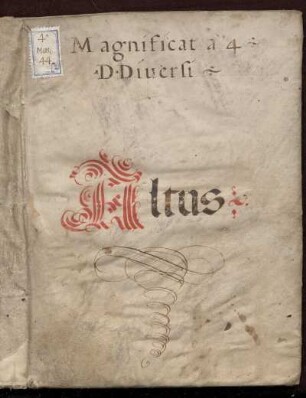 4°
Mus.
44
Magnificat à 4
·D·Diversi
Altus